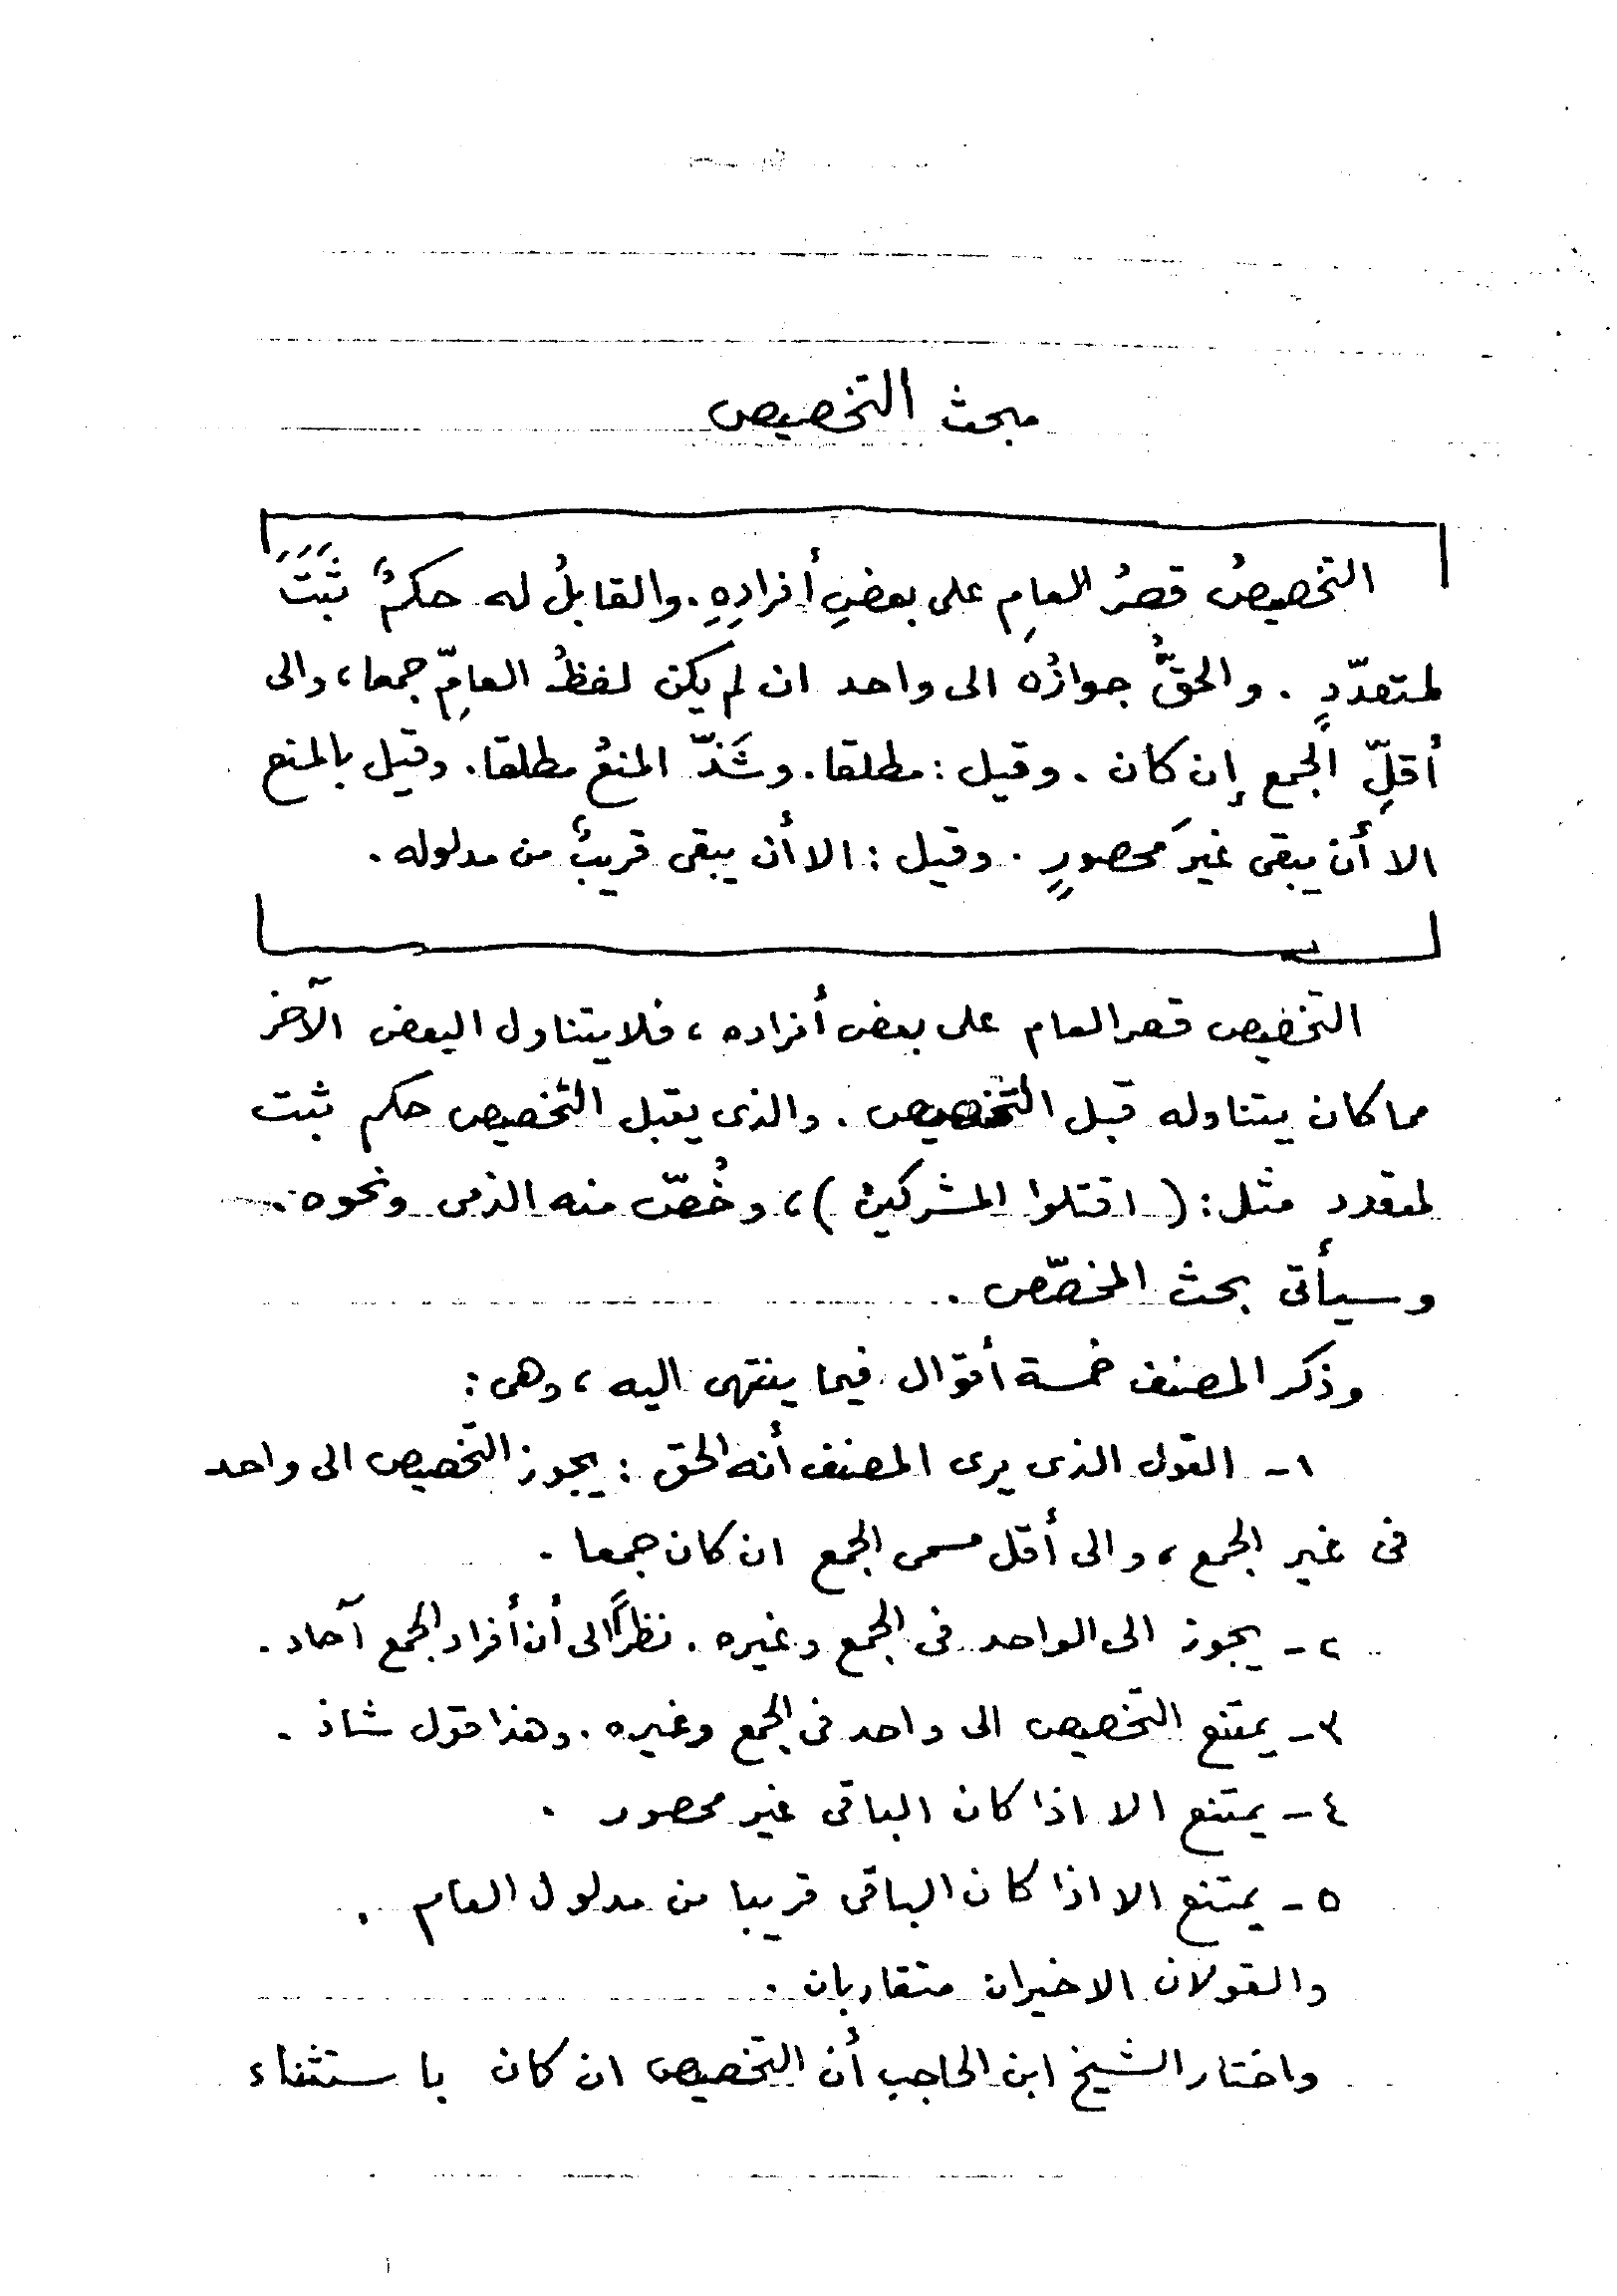 مبحث التخصيص
التخصيصُ قصرُ العامِ على بعضِ أفرادِهِ. والقابلُ له حكمٌ ثَبَتَ
لمتعدّدٍ. والحقُّ جوازُه الى واحد ان لم يكن لفظُ العامِّ جمعا، والى
أقلِّ الجمع إن كان. وقيل: مطلقا. وشَذّ المنعُ مطلقا. وقيل بالمنع
الا أن يبقى غيرَ محصورٍ. وقيل: الا أن يبقى قريبٌ من مدلوله.
التخصيص قصر العام على بعض أفراده، فلا يتناول البعض الآخر
مما كان يتناوله قبل التخصيص. والذى يقبل التخصيص حكم ثبت
لمتعدد مثل: (اقتلوا المشركين)، وخُصّ منه الذمى ونحوه.
وسيأتى بحث المخصّص.
وذكر المصنف خمسة أقوال فيما ينتهى اليه، وهى:
١- القول الذى يرى المصنف أنه الحق: يجوز التخصيص الى واحد
فى غير الجمع، والى أقل مسمى الجمع ان كان جمعا.
٢- يجوز الى الواحد فى الجمع وغيره. نظراً الى أن أفراد الجمع آحاد.
٣- يمتنع التخصيص الى واحد فى الجمع وغيره. وهذا قول شاذ.
٤- يمتنع الا اذا كان الباقى غير محصور.
٥- يمتنع الا اذا كان الباقى قريبا من مدلول العام.
والقولان الاخيران متقاربان.
واختار الشيخ ابن الحاجب أن التخصيص ان كان باستثناء